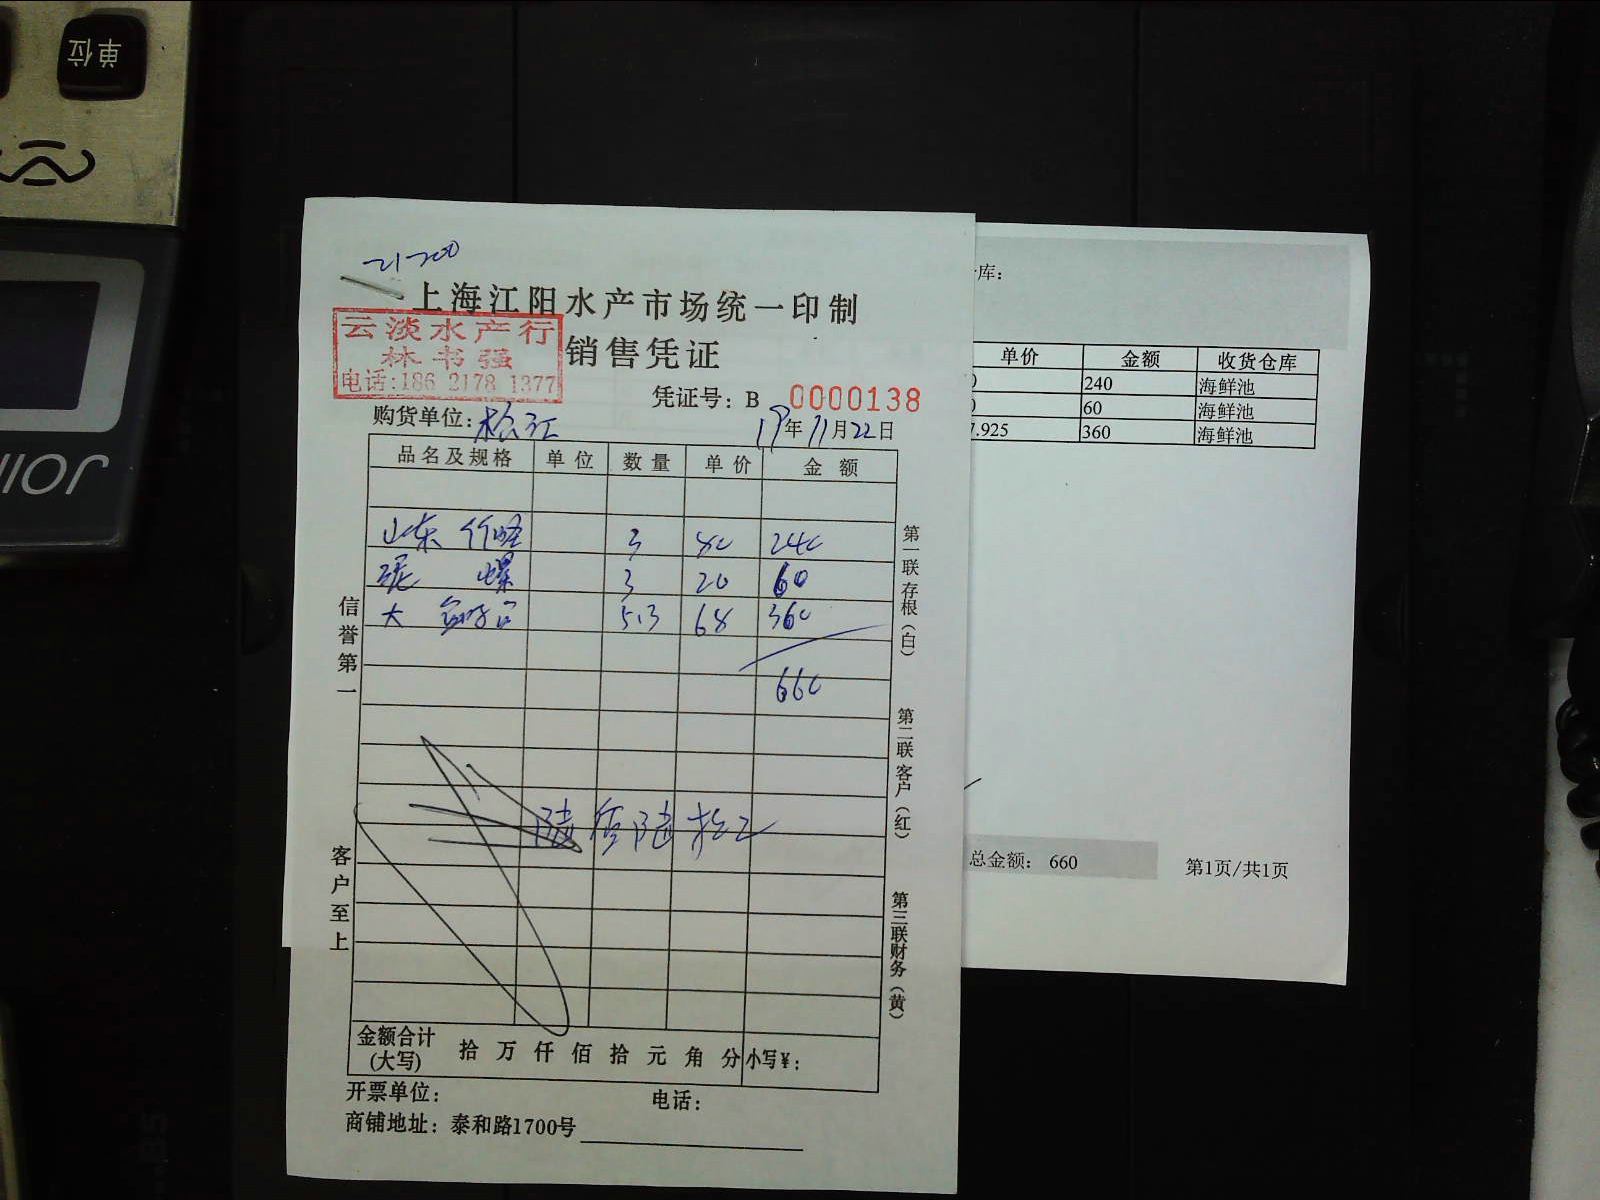 单位
21-700
上海江阳水产市场统一印制
云淡水产行
林书强
电话:186 2178 1377
销售凭证
凭证号: B 0000138
购货单位: 松江
19年11月22日
品名及规格 单位 数量 单价 金额
山东 竹蛏 3 80 240
泥 螺 3 20 60
大 5.3 68 360
660
陆佰陆拾元
信誉第一
客户至上
第一联存根(白)
第二联客户(红)
第三联财务(黄)
金额合计(大写) 拾 万 仟 佰 拾 元 角 分 小写¥:
开票单位: 电话:
商铺地址: 泰和路1700号
库:
单价 金额 收货仓库
240 海鲜池
60 海鲜池
7.925 360 海鲜池
总金额: 660 第1页/共1页